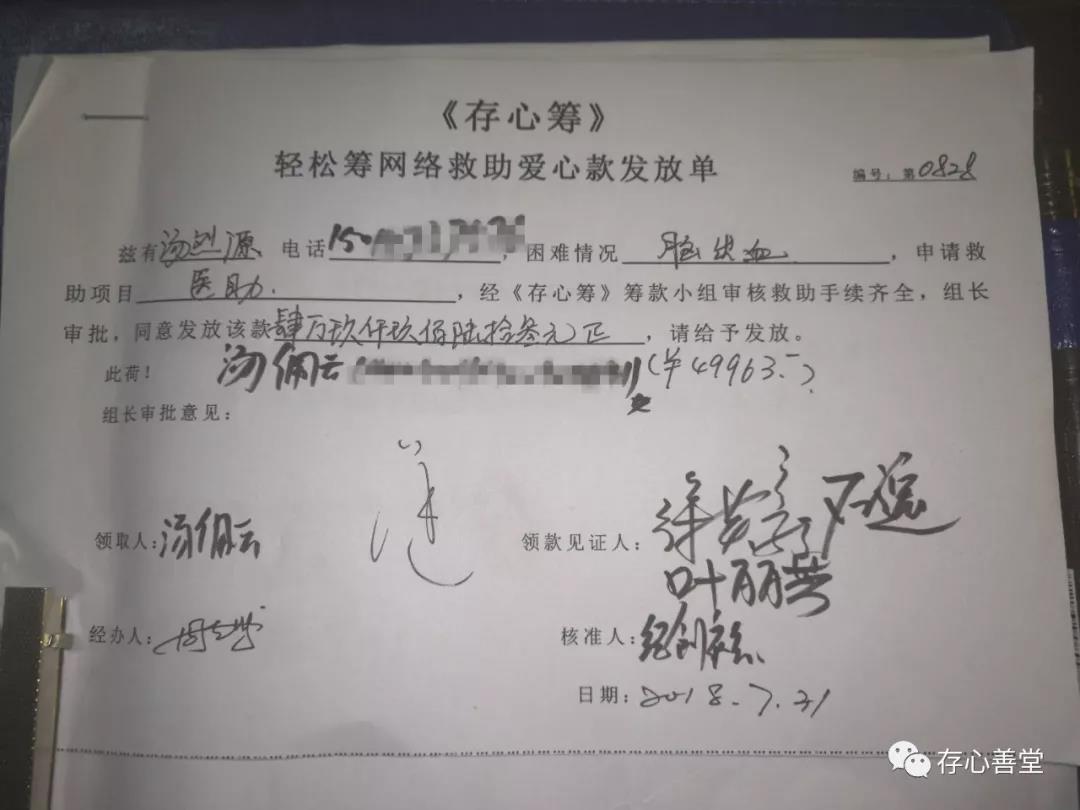 《存心筹》
轻松筹网络救助爱心款发放单
编号：第0828
兹有汤 源 电话150 ，困难情况 脑出血 ，申请救
助项目 医助. ，经《存心筹》筹款小组审核救助手续齐全，组长
审批，同意发放该款肆万玖仟玖佰陆拾叁元正，请给予发放。
此荷！ 汤佩云 (￥49963.-)
组长审批意见：
领取人：汤佩云 领款见证人：
叶丽
经办人： 核准人：
日期：2018.7.31
存心善堂